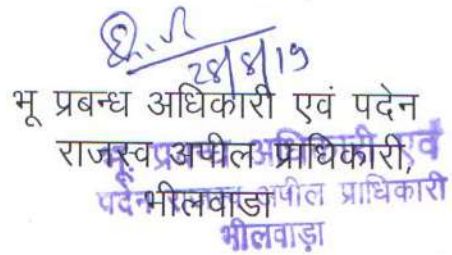 28/8/19
भू प्रबन्ध अधिकारी एवं पदेन
राजस्व अपील प्राधिकारी,
भीलवाडा
भू प्रबन्ध अधिकारी एवं
पदेन राजस्व अपील प्राधिकारी
भीलवाड़ा